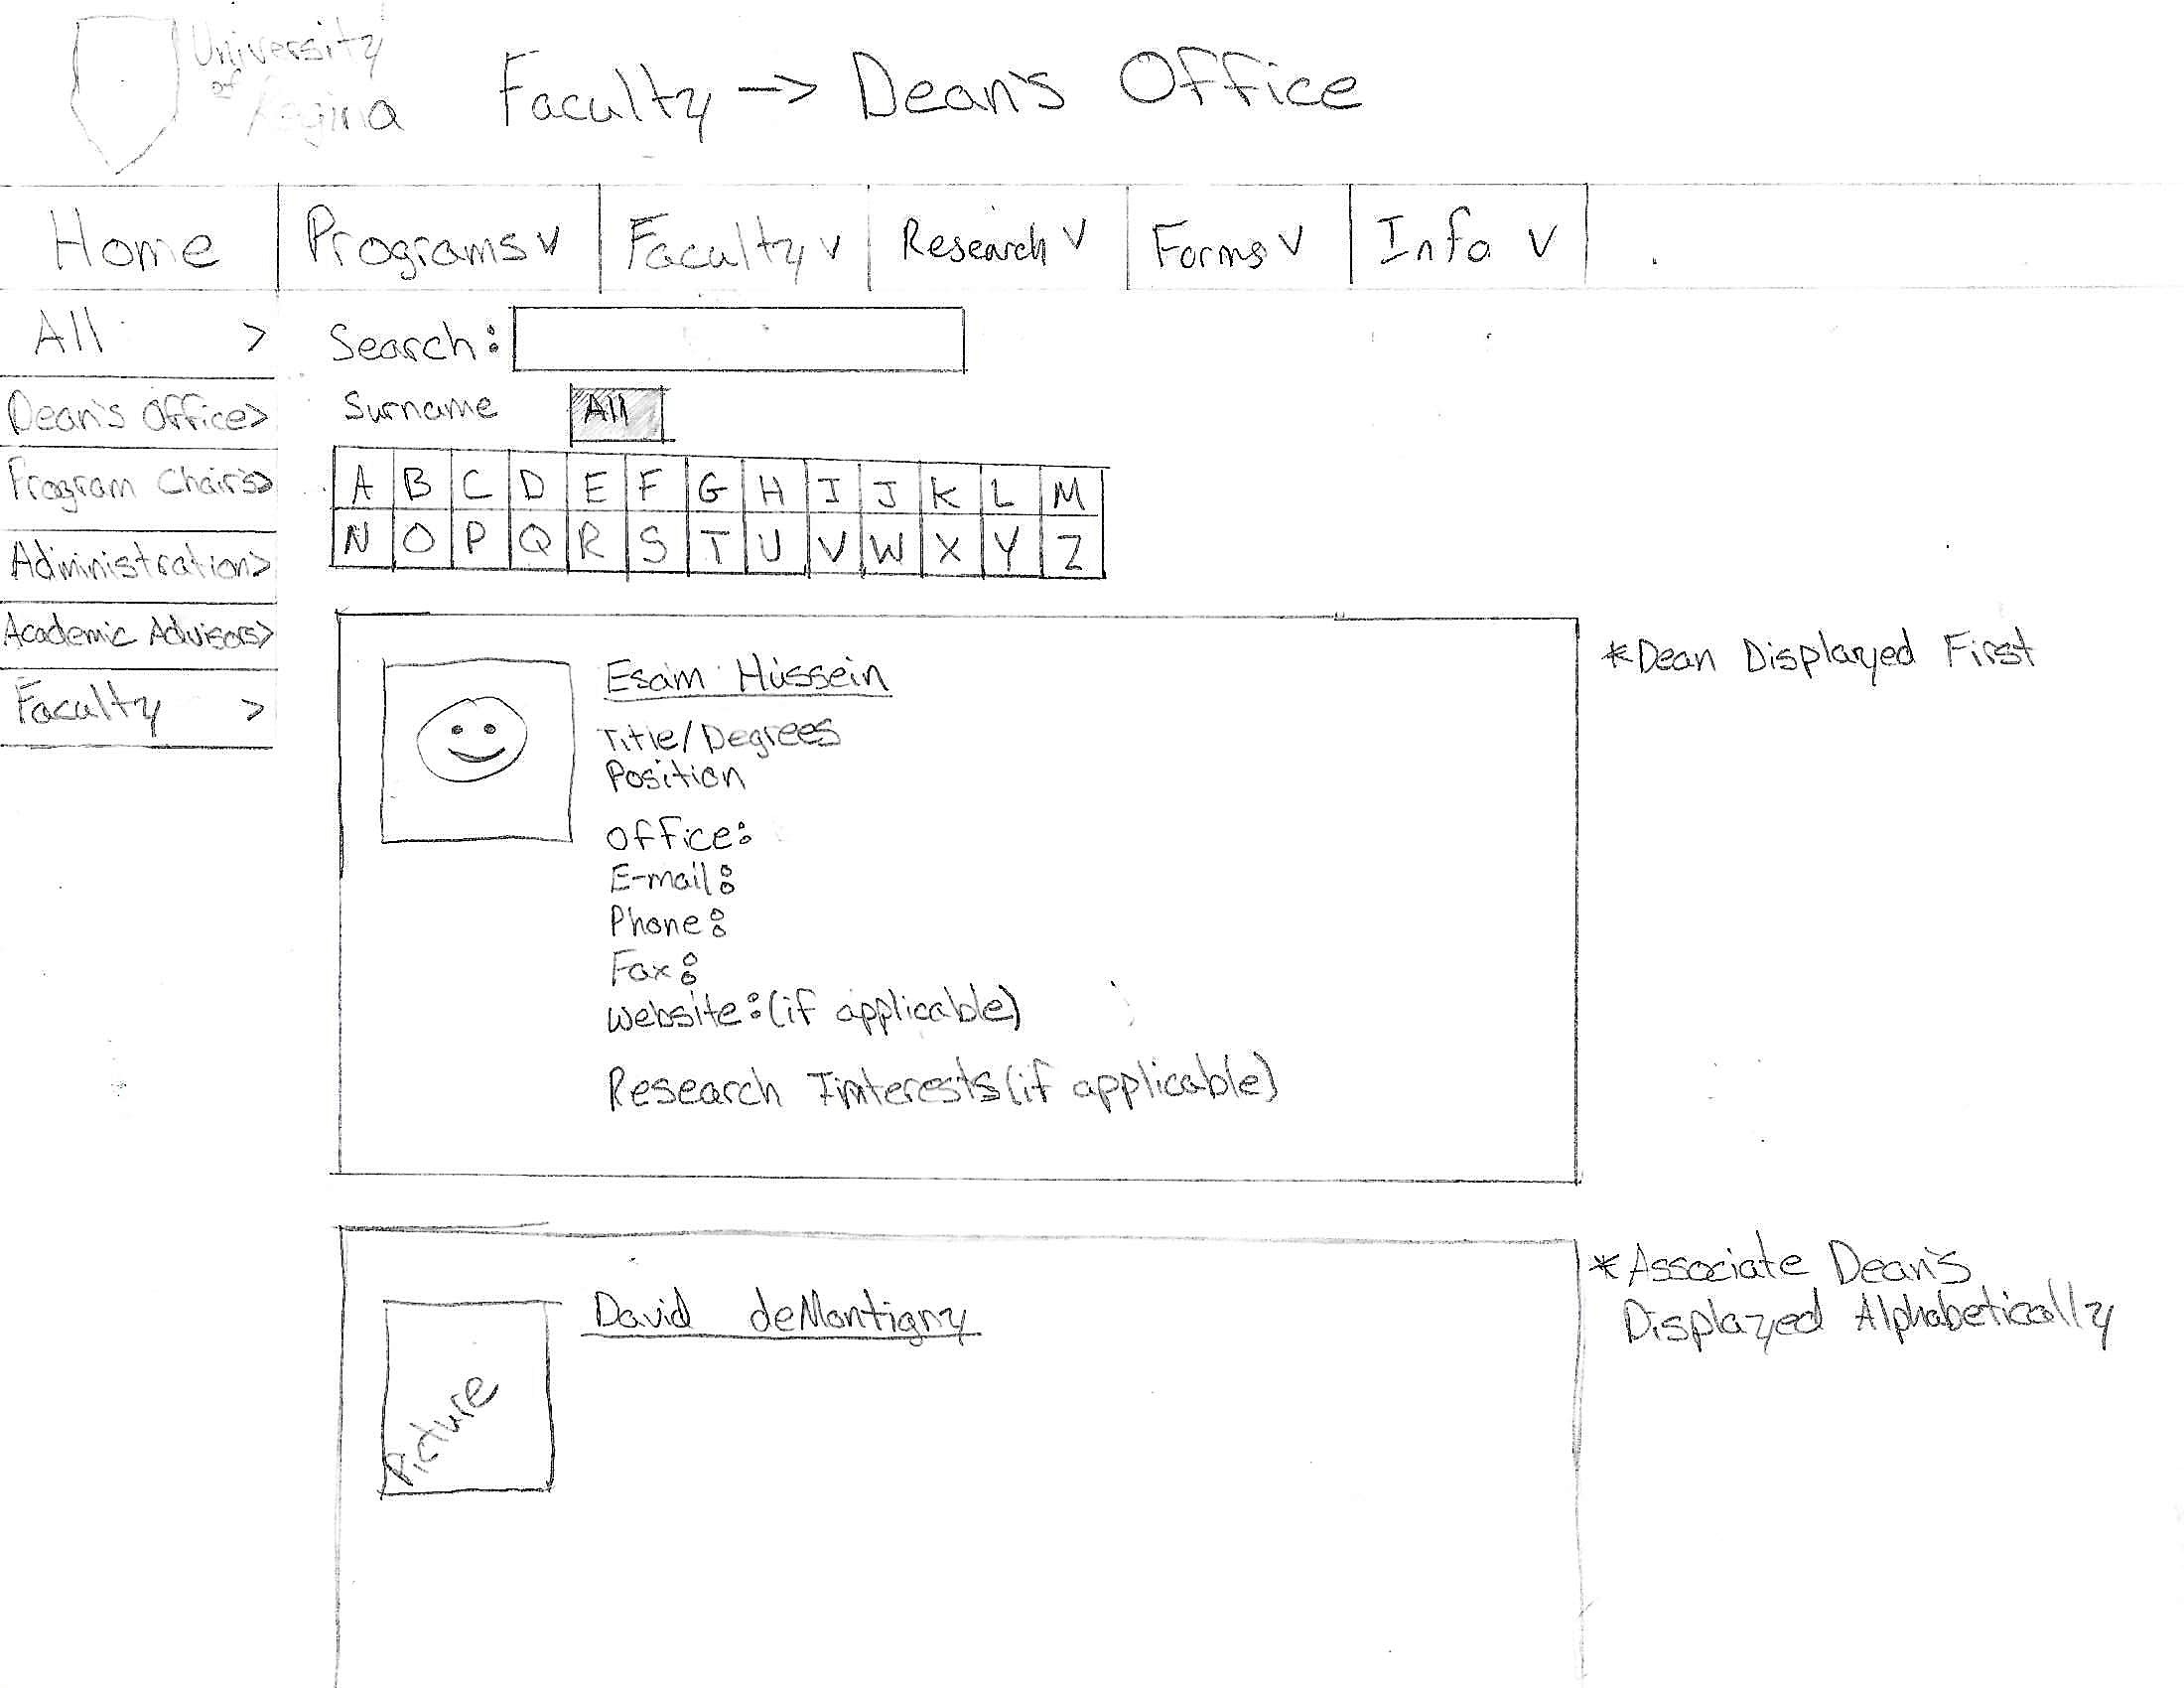 University
of
Regina
Faculty -> Dean's Office
Home Programs v Faculty v Research v Forms v Info v
All >
Dean's Office >
Program Chairs >
Administration >
Academic Advisors >
Faculty >
Search:
Surname All
A B C D E F G H I J K L M
N O P Q R S T U V W X Y Z
Esam Hussein
Title/Degrees
Position
Office:
E-mail:
Phone:
Fax:
Website: (if applicable)
Research Imterests (if applicable)
*Dean Displayed First
David deMontigny
Picture
*Associate Dean's
Displayed Alphabetically